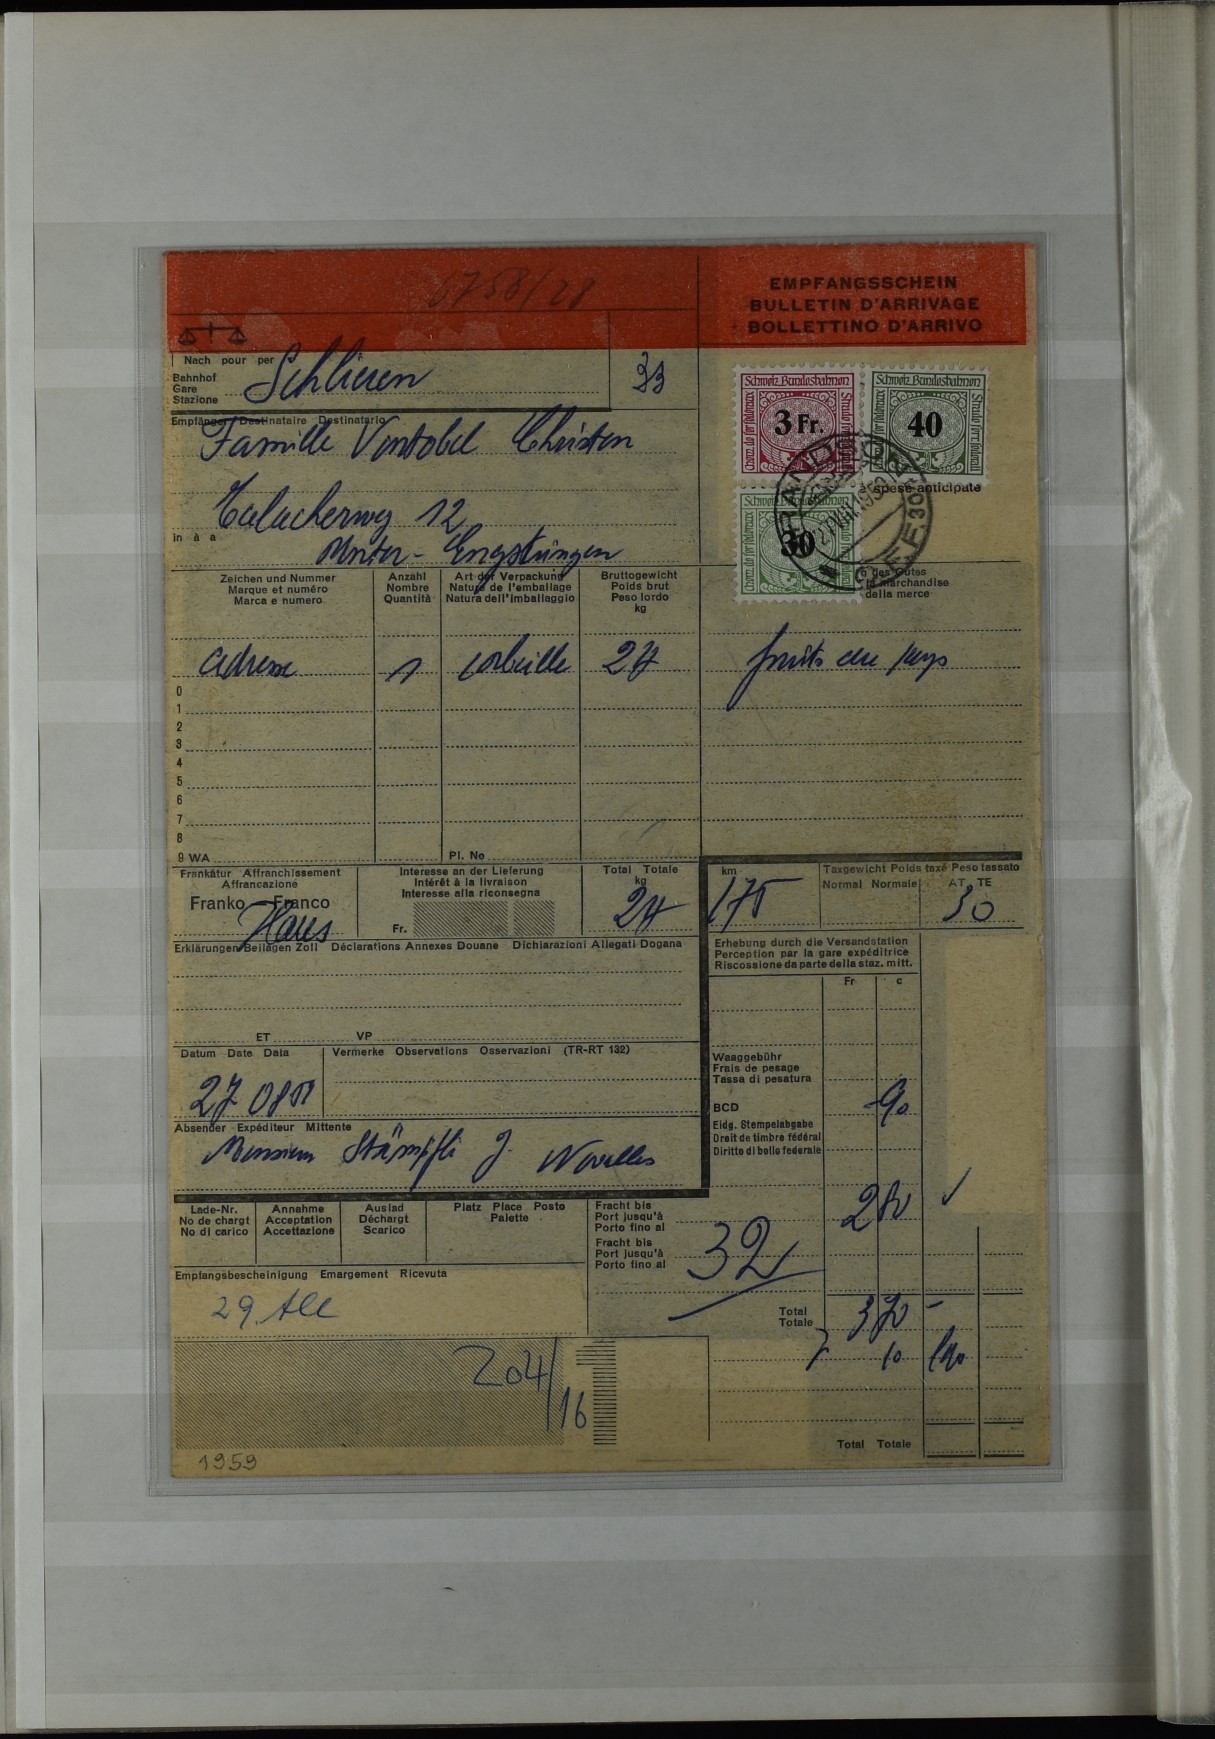 6758/28
EMPFANGSSCHEIN
BULLETIN D'ARRIVAGE
BOLLETTINO D'ARRIVO
Nach pour per
Bahnhof
Gare
Stazione
Schlieren
33
Schweiz. Bundesbahnen
3 Fr.
Schweiz. Bundesbahnen
40
Schweiz. Bundesbahnen
30
Empfänger Destinataire Destinatario
Famille Vontobel Christen
spese anticipate
12
in à a
Unter-Engstringen
Zeichen und Nummer
Marque et numéro
Marca e numero
Anzahl
Nombre
Quantità
Art der Verpackung
Nature de l'emballage
Natura dell'imballaggio
Bruttogewicht
Poids brut
Peso lordo
kg
des Gutes
la marchandise
della merce
adresse 1 corbeille 27 fruits du pays
0
1
2
3
4
5
6
7
8
9 WA
Pl. No
Frankatur Affranchissement
Affrancazione
Franko Franco
Haus
Interesse an der Lieferung
Intérêt à la livraison
Interesse alla riconsegna
Fr.
Total Totale
kg
27
km
175
Taxgewicht Poids taxé Peso tassato
Normal Normale
AT TE
30
Erklärungen Beilagen Zoll Déclarations Annexes Douane Dichiarazioni Allegati Dogana
ET
VP
Erhebung durch die Versandstation
Perception par la gare expéditrice
Riscossione da parte della staz. mitt.
Fr c
Datum Date Data
27 08
Vermerke Observations Osservazioni (TR-RT 132)
Waaggebühr
Frais de pesage
Tassa di pesatura
BCD
-90
Eidg. Stempelabgabe
Droit de timbre fédéral
Diritto di bollo federale
Absender Expéditeur Mittente
Monsieur Stämpfli J. Novalles
Lade-Nr.
No de chargt
No di carico
Annahme
Acceptation
Accettazione
Auslad
Déchargt
Scarico
Platz Place Posto
Palette
Fracht bis
Port jusqu'à
Porto fino al
280
Fracht bis
Port jusqu'à
Porto fino al
32
Empfangsbescheinigung Emargement Ricevuta
29.
Total
Totale
370 -
10
204/16
Total Totale
1959